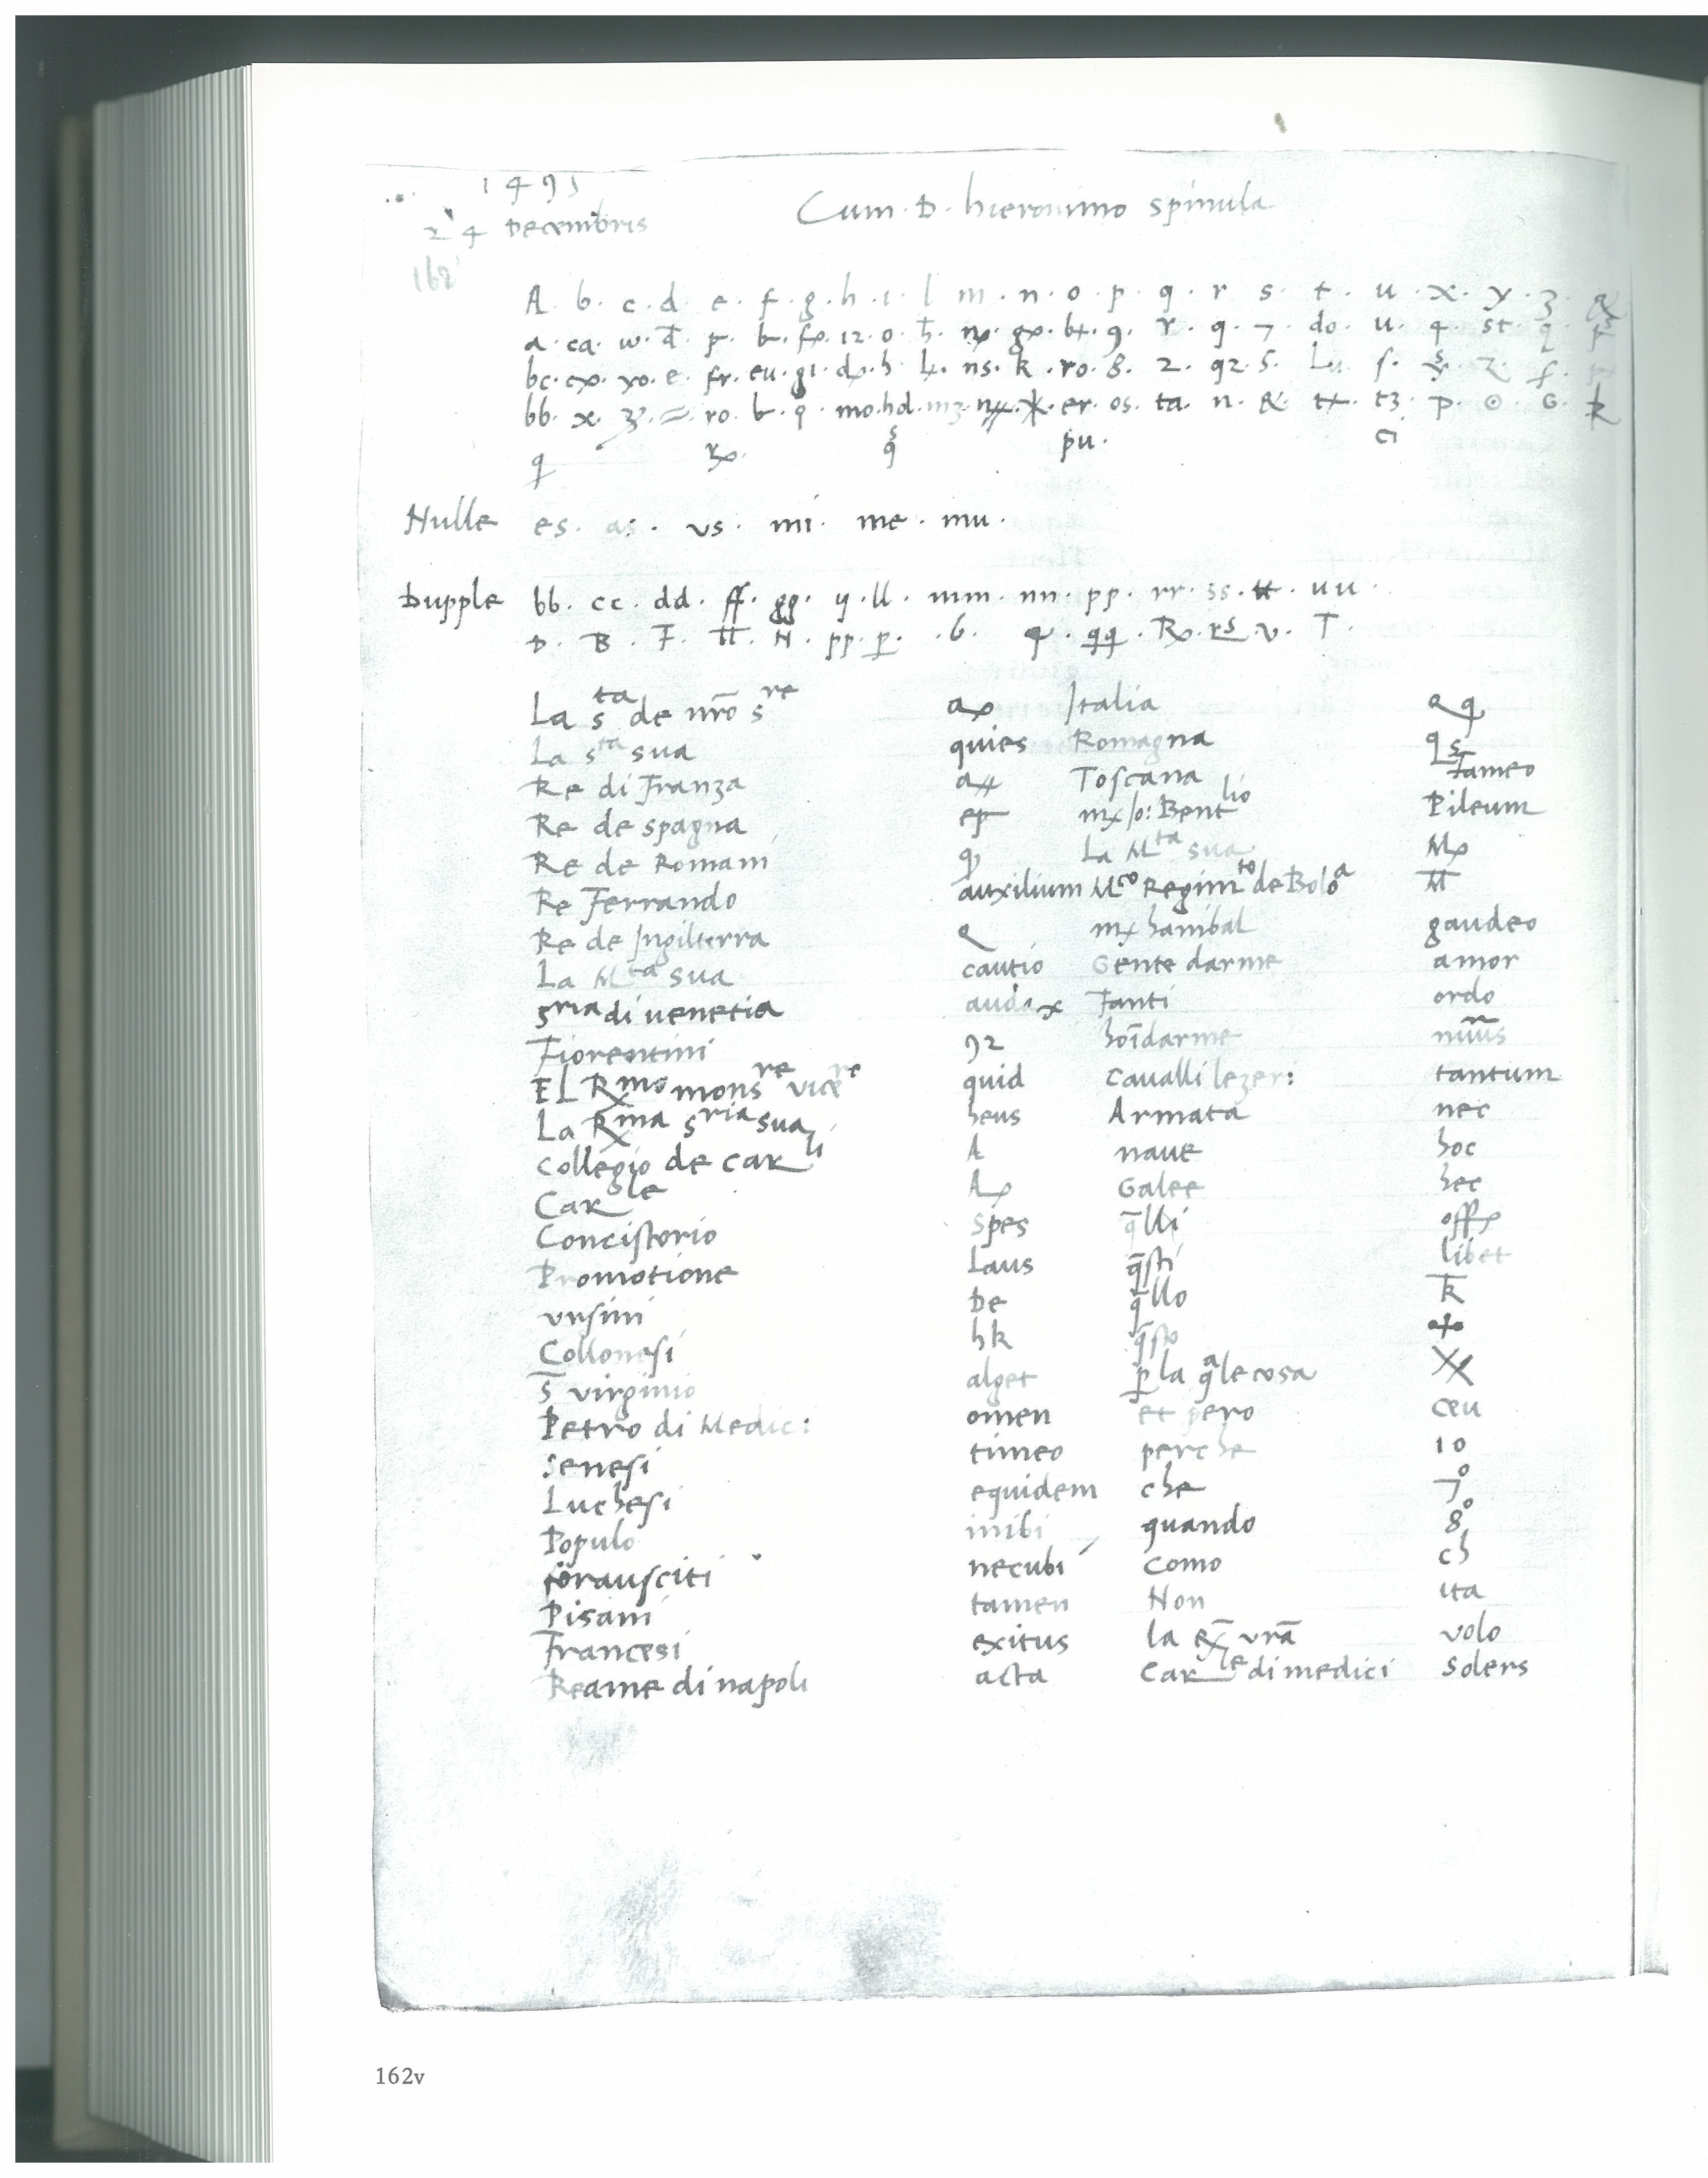 1495
24 Decembris
162
Cum · D · hieronimo spinula
A · b · c · d · e · f · g · h · i · l · m · n · o · p · q · r · s · t · u · x · y · z · &
a · ca · w · d̄ · p · b · fꝓ · 12 · o · h̄ · · gꝓ · b+ · 9 · r · q · 7 · do · u · 4 · st ·
bc · cꝓ · yo · e · fr · eu · gi · dꝓ · h · · ns · k · ro · 8 · 2 · q2 · 5 · Lu · s ·
bb · x · · ro · b · q · mo · hd · mz · · er · os · ta · n · & · t+ · tz · p · ⊙ · G · k
q · pu · ci
Nulle es · as · vs · mi · me · mu ·
Dupple bb · cc · dd · ff · gg · y · ll · mm · nn · pp · rr · ss · tt · uu ·
D · B · F · · H · pp · p · 6 · · qq · · rs · v · T ·
La sta de nrō sre aꝓ Italia
La sta sua quies Romagna qs
Re di Franza a# Toscana tameo
Re de spagna ep Bentlio Pileum
Re de Romani La Mta sua Mꝓ
Re Ferrando auxilium Mco Regimto de Boloa M̄
Re de Ingilterra hanibal gaudeo
La Mta sua cautio Gente darme amor
sria di uenetia audax Fanti ordo
Fiorentini 92 hoīdarme
EL Rmo monsre vicere quid Caualli lezer: tantum
La Rma sria sua heus Armata nec
Collegio de Carli A naue hoc
Carle Aꝓ Galee hec
Concistorio Spes q̄lli offꝓ
Promotione Laus q̄sti libet
vrsini De q̄llo k̄
Collonesi hk q̄sto
s̄ virginio alget ꝑ la qale cosa XX
Petro di Medic: omen et pero ceu
Senesi timeo perche 10
Luchesi equidem che 7o
Populo inibi quando 8o
forausciti necubi Como ch
Pisani tamen Non ita
Francesi exitus la ex̄ vrā volo
Reame di napoli acta Carle di medici Solers
162v